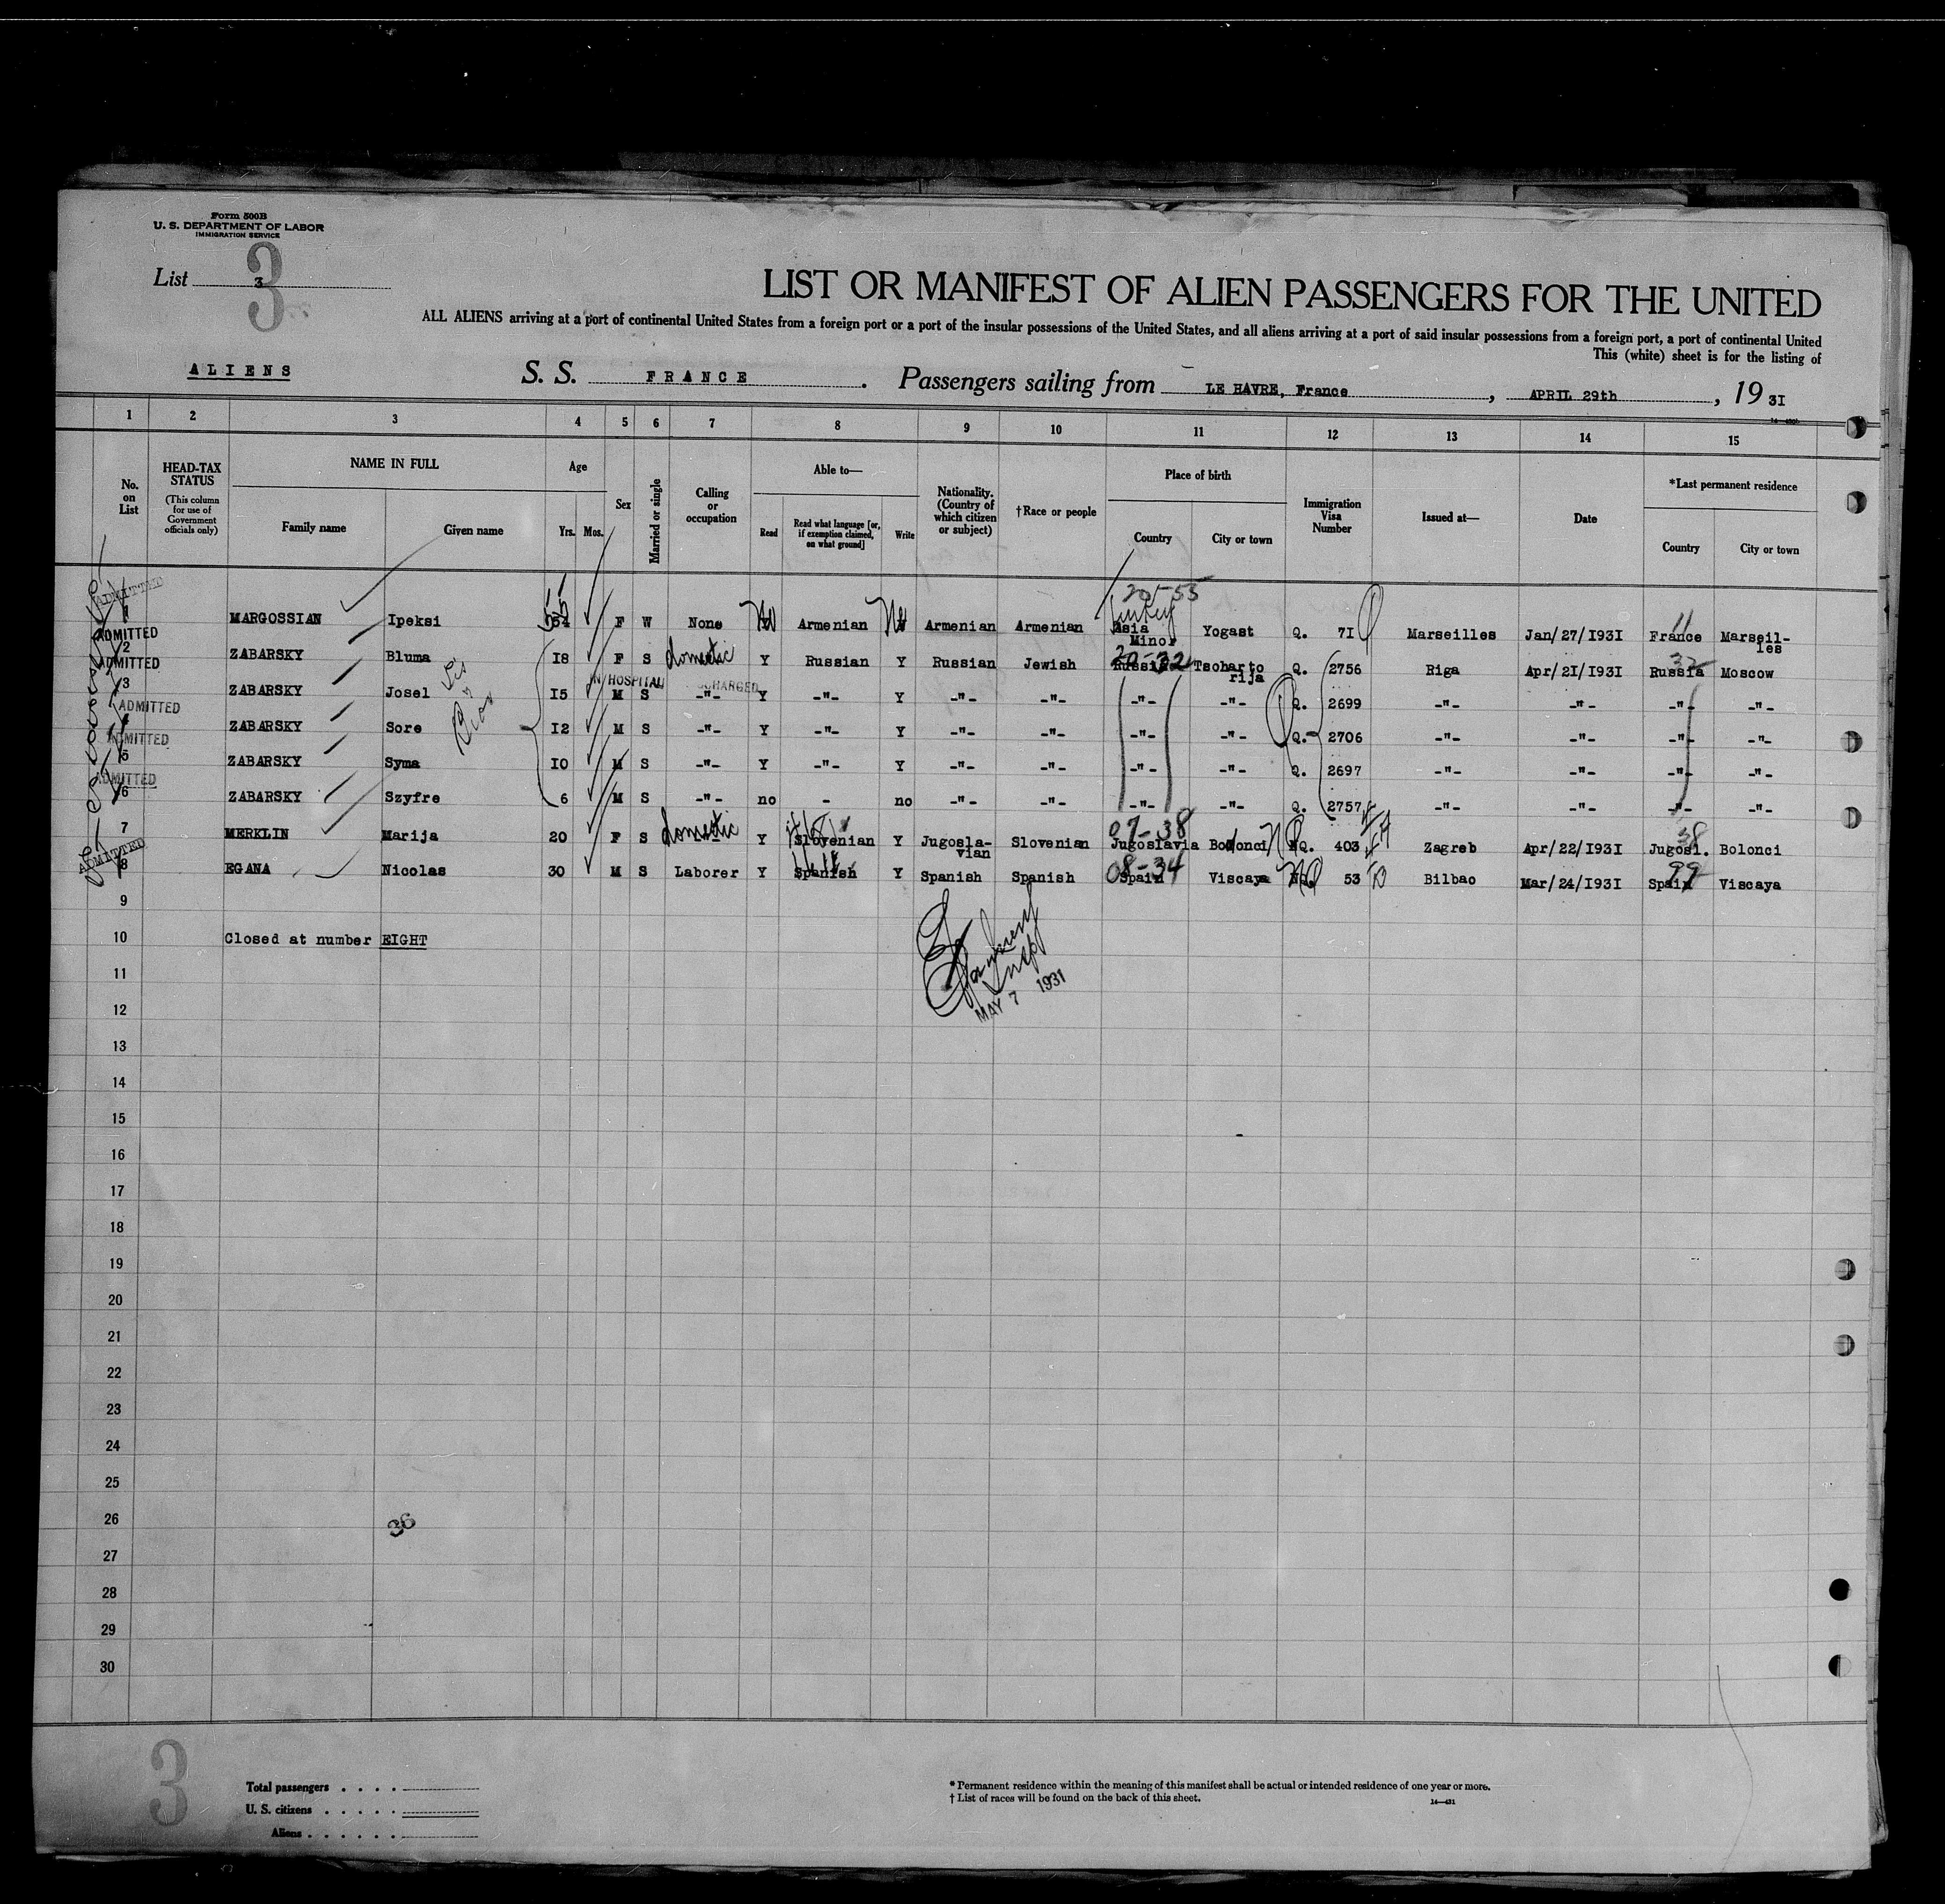 Form 500B
U. S. DEPARTMENT OF LABOR
IMMIGRATION SERVICE
3
List 3
LIST OR MANIFEST OF ALIEN PASSENGERS FOR THE UNITED
ALL ALIENS arriving at a port of continental United States from a foreign port or a port of the insular possessions of the United States, and all aliens arriving at a port of said insular possessions from a foreign port, a port of continental United
This (white) sheet is for the listing of
ALIENS S. S. FRANCE . Passengers sailing from LE HAVRE, France , APRIL 29th , 19 31
1 2 3 4 5 6 7 8 9 10 11 12 13 14 15
No. on List
HEAD-TAX STATUS (This column for use of Government officials only)
NAME IN FULL
Family name Given name
Age
Yrs. Mos.
Sex
Married or single
Calling or occupation
Able to—
Read Read what language [or, if exemption claimed, on what ground] Write
Nationality. (Country of which citizen or subject)
†Race or people
Place of birth
Country City or town
Immigration Visa Number
Issued at—
Date
*Last permanent residence
Country City or town
ADMITTED
20-55
Turkey
1 MARGOSSIAN Ipeksi 54 55 F W None No Armenian No Armenian Armenian Asia Minor Yogast Q. 71 Marseilles Jan/27/1931 France 11 Marseil-les
ADMITTED
2 ZABARSKY Bluma 18 F S domestic Y Russian Y Russian Jewish Russia 20-32 Tscharto rija Q. 2756 Riga Apr/21/1931 Russia 32 Moscow
ADMITTED
IN HOSPITAL DISCHARGED
3 ZABARSKY Josel 15 M S -"- Y -"- Y -"- -"- -"- -"- Q. 2699 -"- -"- -"- -"-
ADMITTED
4 ZABARSKY Sore 12 M S -"- Y -"- Y -"- -"- -"- -"- Q. 2706 -"- -"- -"- -"-
ADMITTED
5 ZABARSKY Syma 10 M S -"- Y -"- Y -"- -"- -"- -"- Q. 2697 -"- -"- -"- -"-
ADMITTED
6 ZABARSKY Szyfre 6 M S -"- no - no -"- -"- -"- -"- Q. 2757 -"- -"- -"- -"-
7 MERKLIN Marija 20 F S domestic Y Slovenian Y Jugosla-vian Slovenian 07-38 Jugoslavia Bodonci Q. 403 Zagreb Apr/22/1931 Jugosl. 38 Bolonci
ADMITTED
8 EGANA Nicolas 30 M S Laborer Y Spanish Y Spanish Spanish 08-34 Spain Viscaya 53 Bilbao Mar/24/1931 Spain 99 Viscaya
9
10 Closed at number EIGHT
11
Insp
MAY 7 1931
12
13
14
15
16
17
18
19
20
21
22
23
24
25
26
36
27
28
29
30
3
Total passengers
U. S. citizens
Aliens
* Permanent residence within the meaning of this manifest shall be actual or intended residence of one year or more.
† List of races will be found on the back of this sheet.
14—431